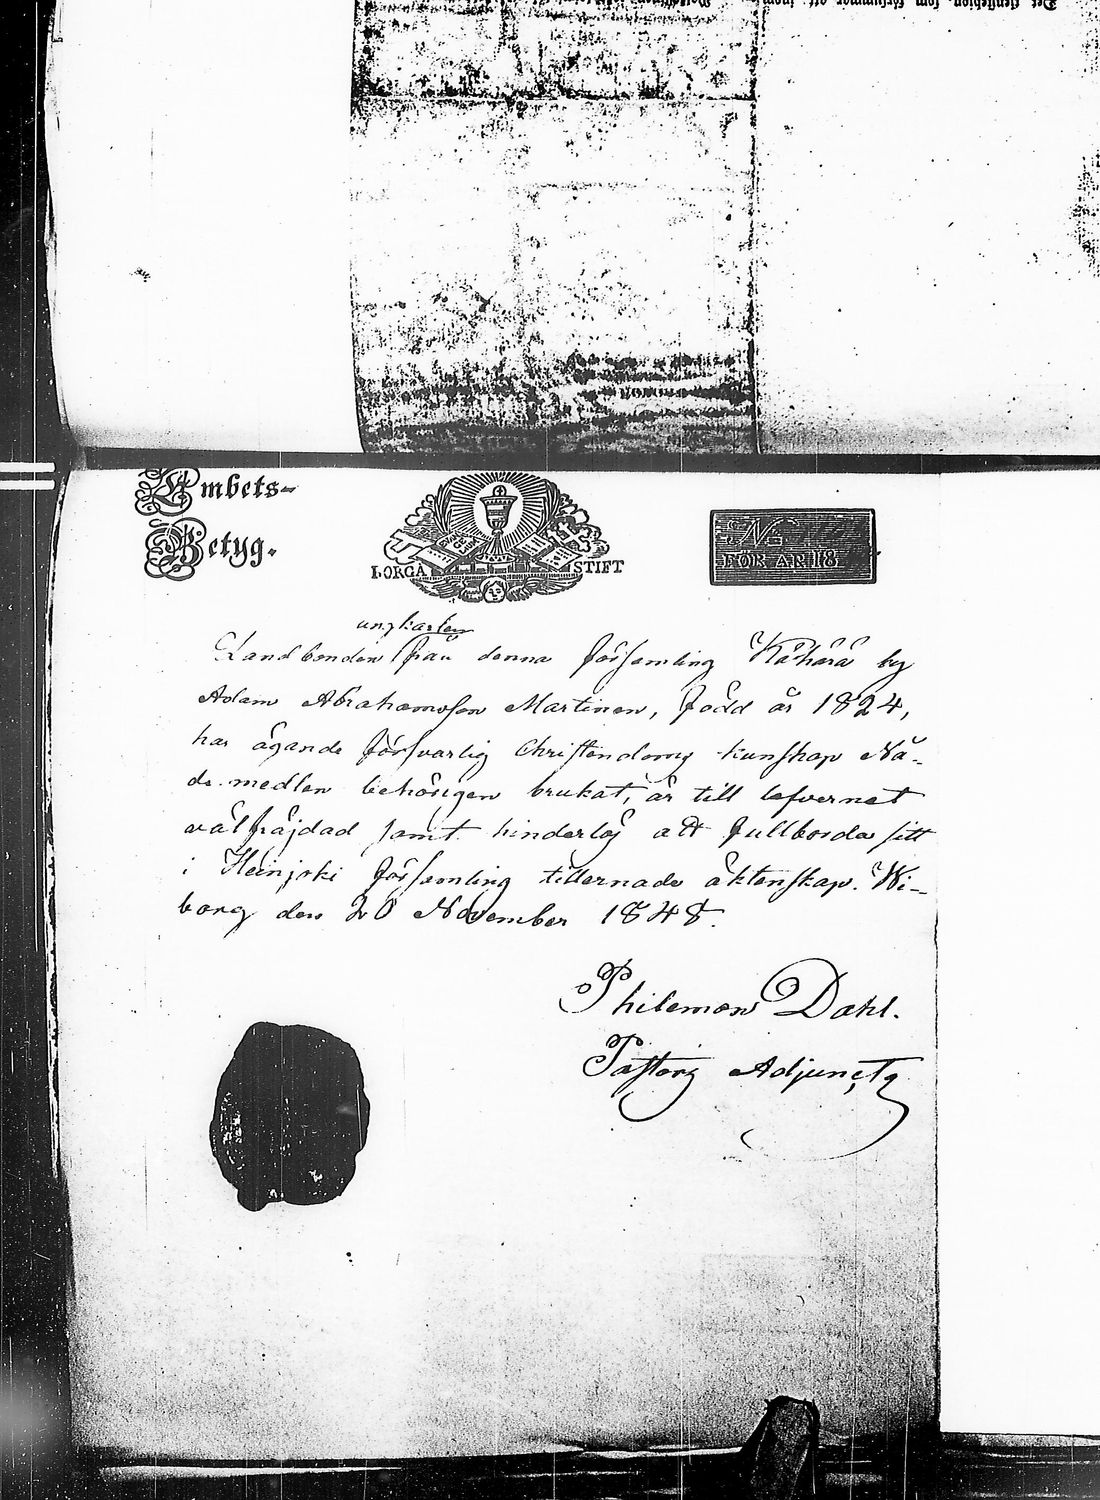 Embets-
Betyg.
BORGÅ STIFT
No
FÖR ÅR 18
ungkarlen
Landbonden från denna församling Kähärä by
Adam Abrahamsson Martinen, född år 1824,
har ägande försvarlig Christendoms kunskap Nå-
de-medlen behörigen brukat, är till lefvernet
välfräjdad samt hinderlös att fullborda sitt
i församling tillernade äktenskap. Wi-
borg den 20 November 1848.
Philemon Dahl.
Pastors Adjunct